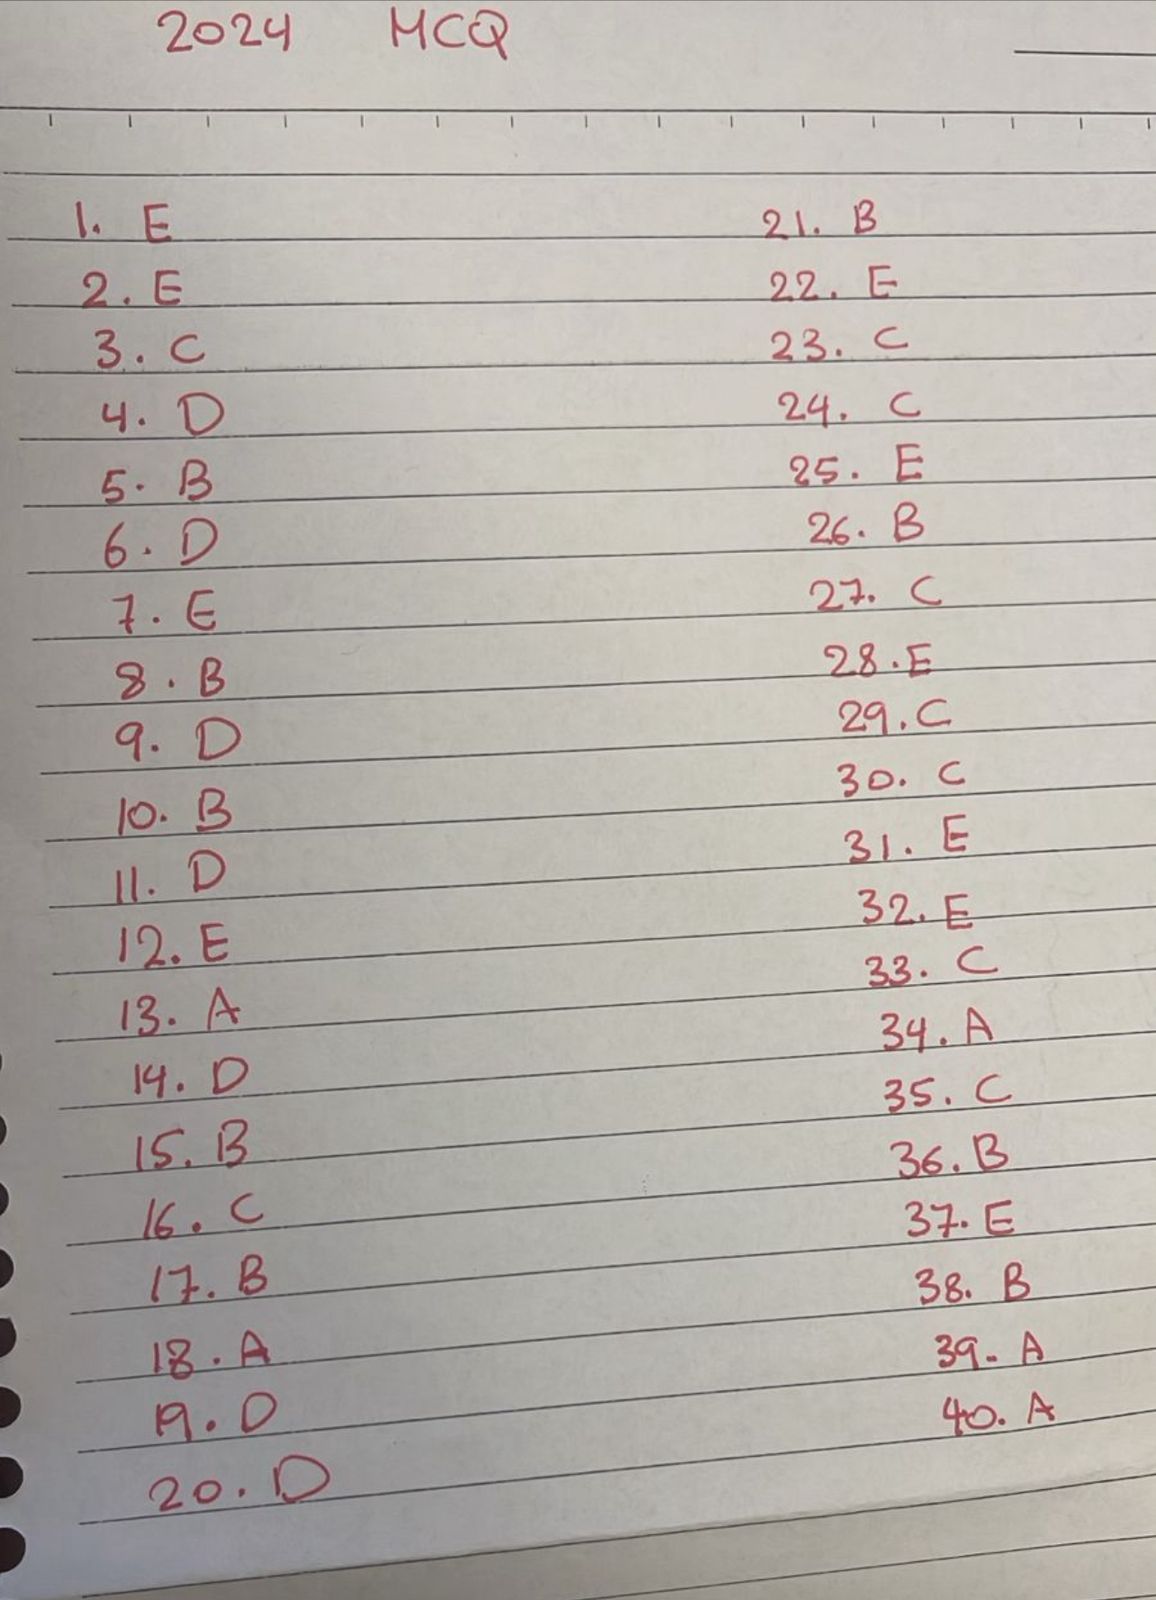 2024 MCQ
1. E
2. E
3. C
4. D
5. B
6. D
7. E
8. B
9. D
10. B
11. D
12. E
13. A
14. D
15. B
16. C
17. B
18. A
19. D
20. D
21. B
22. E
23. C
24. C
25. E
26. B
27. C
28. E
29. C
30. C
31. E
32. E
33. C
34. A
35. C
36. B
37. E
38. B
39. A
40. A